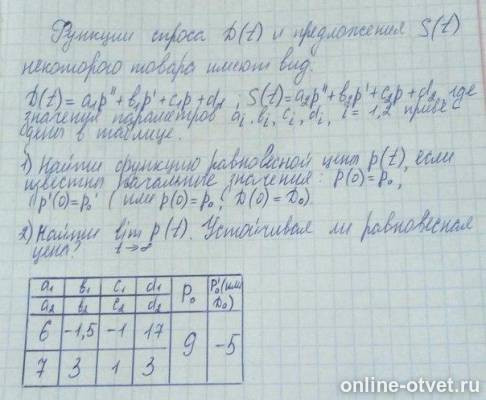 Функции спроса D(t) и предложения S(t)
некоторого товара имеют вид.
D(t) = a1p'' + b1p' + c1p + d1 ; S(t) = a2p'' + b2p' + c2p + d2, где
значения параметров ai, bi, ci, di, i = 1,2
цены в таблице.
1) Найти функцию равновесной цены p(t), если
известны начальные значения: p(0) = p0,
p'(0) = p0' (или p(0) = p0; D(0) = D0).
2) Найти lim p(t). Устойчивая ли равновесная
t→∞
цена?
a1 b1 c1 d1 P0 P0' (или D0)
a2 b2 c2 d2
6 -1,5 -1 17 9 -5
7 3 1 3
online-otvet.ru